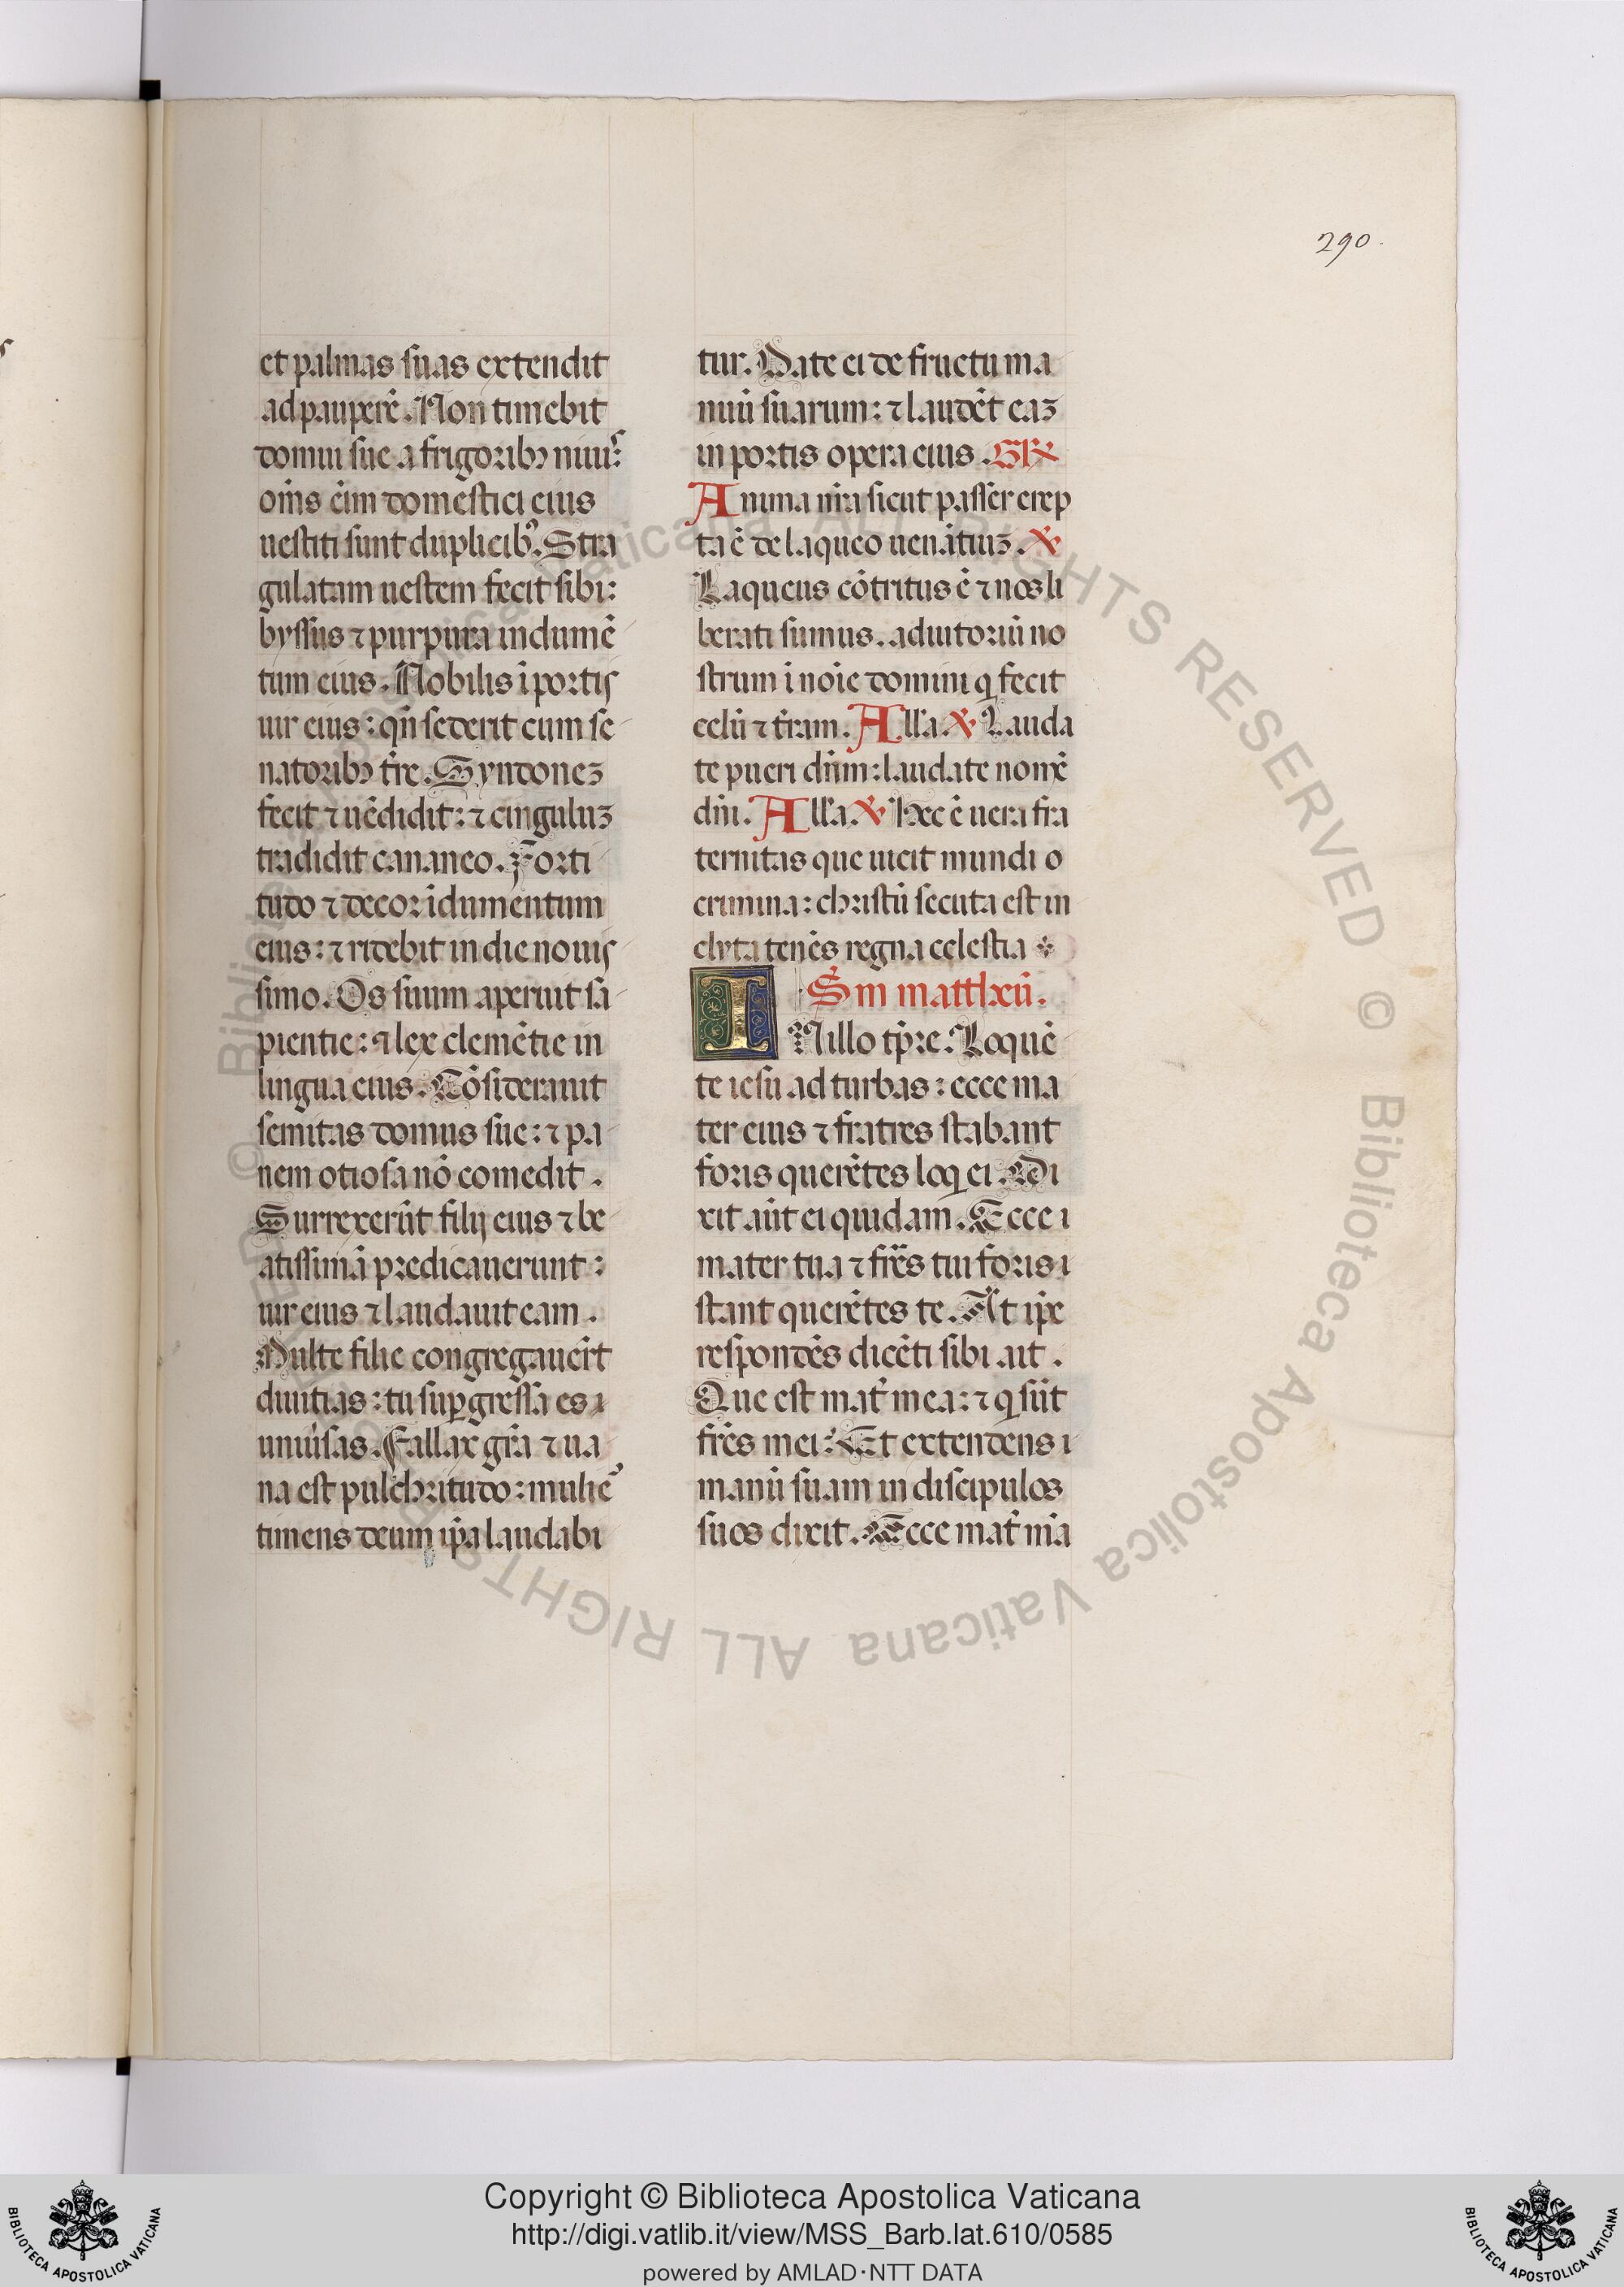 290.
et palmas suas extendit
ad pauperē. Non timebit
domui sue a frigoribꝫ niuis:
oīns eīm domestici eius
uestiti sunt duplicibꝰ. Stra
gulatam uestem fecit sibi:
byssus ⁊ purpura indumē
tum eius. Nobilis ī portis
uir eius: qn̄ sederit cum se
natoribꝫ tr̄re. Syndoneꝫ
fecit ⁊ uēdidit: ⁊ cinguluꝫ
tradidit cananeo. Forti
tudo ⁊ decor īdumentum
eius: ⁊ ridebit in die nouis
simo. Os suum aperuit sa
pientie: ⁊ lex clemētie in
lingua eius. Cōsiderauit
semitas domus sue: ⁊ pa
nem otiosa nō comedit.
Surrexerūt filij eius ⁊ be
atissimā predicauerunt:
uir eius ⁊ laudauit eam.
Multe filie congregauer̄t
diuitias: tu suꝑgressa es
uniuͥsas. Fallax gr̄a ⁊ ua
na est pulchritudo: mulieʳ
timens deum ip̄a laudabi
tur. Date ei de fructu ma
nuū suarum: ⁊ laudēt eaꝫ
in portis opera eius. GR̄
Anima nr̄a sicut passer erep
ta ē de laqueo uenātiuꝫ. ℣
Laqueus cōtritus ē ⁊ nos li
berati sumus. adiutoriū no
strum ī noīe domini qͥ fecit
celū ⁊ tr̄am. All'a. ℣ Lauda
te pueri dn̄m: laudate nomē
dn̄i. All'a. ℣ Hec ē uera fra
ternitas que uicit mundi
crimina: christū secuta est in
clyta tenēs regna celestia
Sm mattheū.
IN illo tp̄re. Loquē
te iesu ad turbas: ecce ma
ter eius ⁊ fratres stabant
foris querētes loqͥ ei. Di
xit aūt ei quidam. Ecce
mater tua ⁊ fr̄es tui foris
stant querētes te. At ip̄e
respondēs dicēti sibi ait.
Que est mat̄ mea: ⁊ qͥ sūt
fr̄es mei? Et extendens
manū suam in discipulos
suos dixit. Ecce mat̄ m̄a
© Biblioteca Apostolica Vaticana ALL RIGHTS RESERVED © Biblioteca Apostolica Vaticana ALL RIGHTS RESERVED
Copyright © Biblioteca Apostolica Vaticana
http://digi.vatlib.it/view/MSS_Barb.lat.610/0585
powered by AMLAD·NTT DATA
BIBLIOTECA APOSTOLICA VATICANA
BIBLIOTECA APOSTOLICA VATICANA